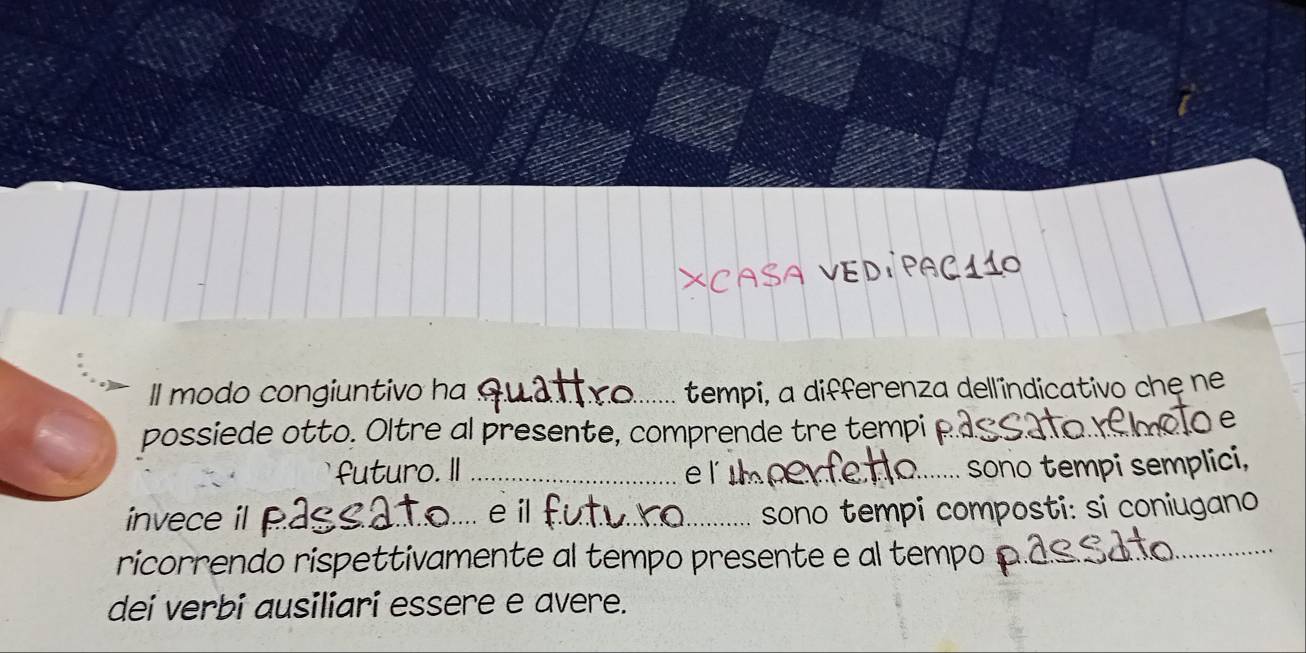 XCASA VEDIPAG110
Il modo congiuntivo ha quattro...... tempi, a differenza dell'indicativo che ne
possiede otto. Oltre al presente, comprende tre tempi passato remoto e
futuro. Il .............................. e l'imperfetto....... sono tempi semplici,
invece il passato.... e il futuro.......... sono tempi composti: si coniugano
ricorrendo rispettivamente al tempo presente e al tempo passato..............
dei verbi ausiliari essere e avere.